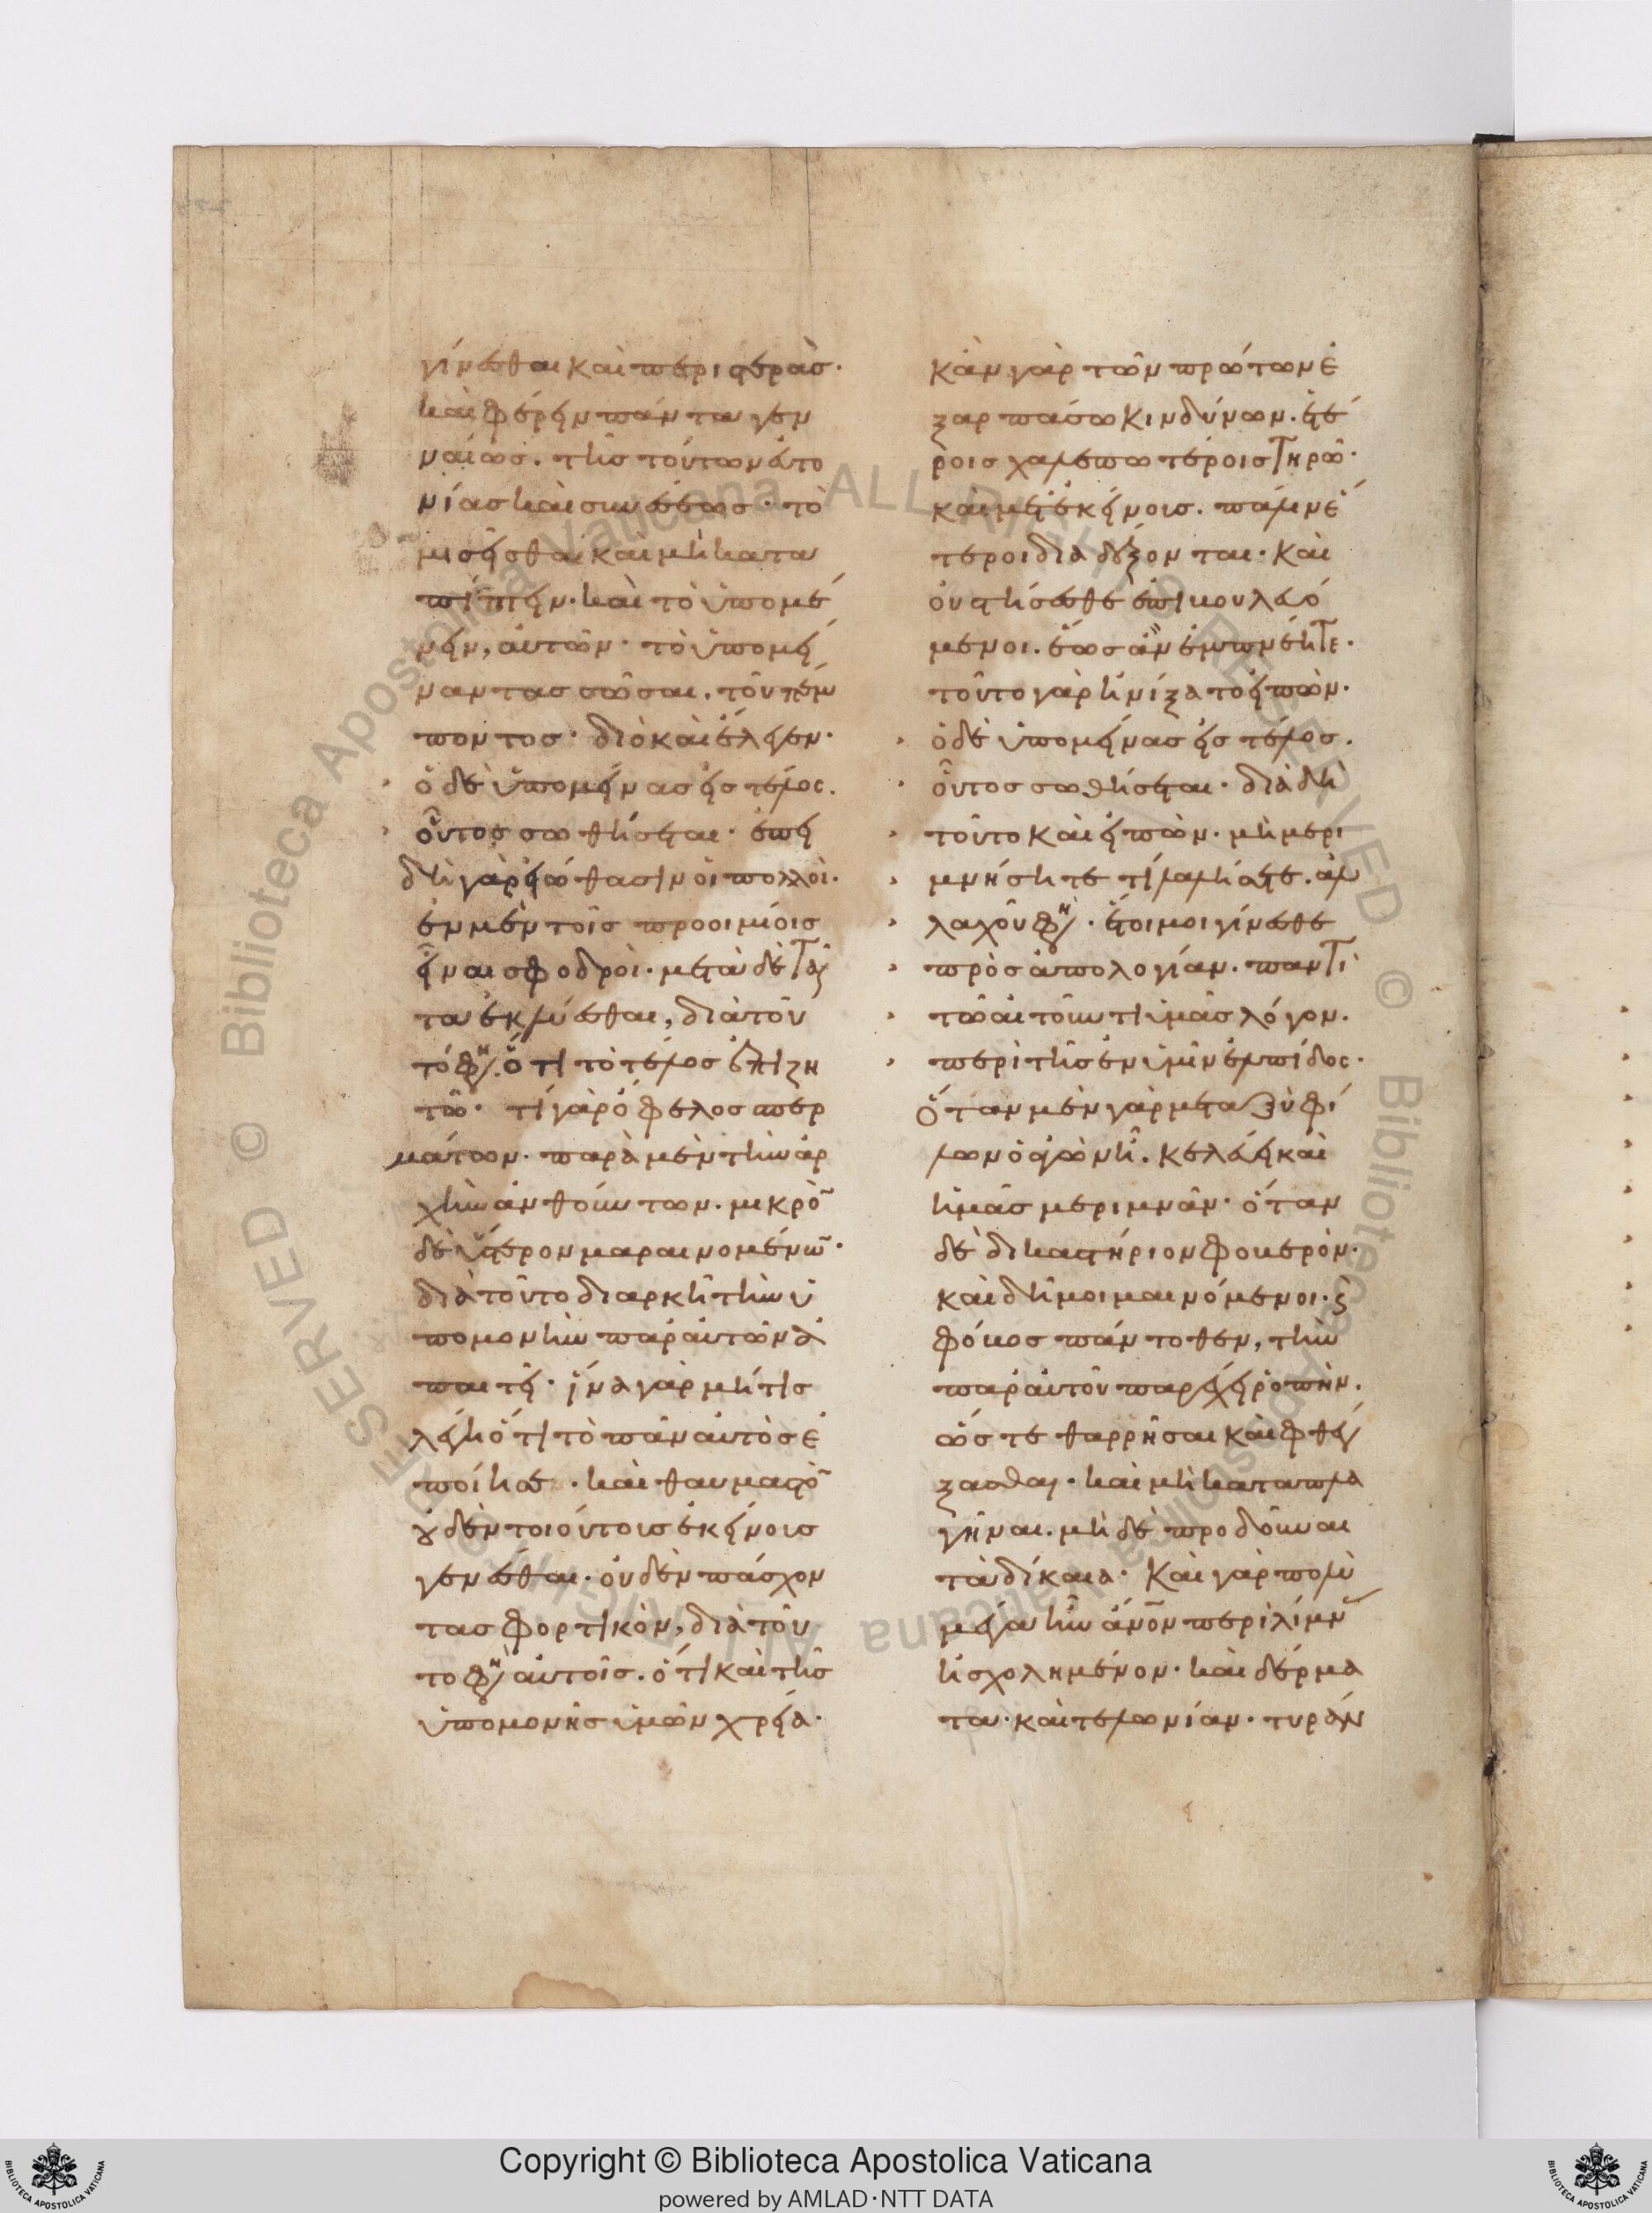 γίνεσθαι καὶ περιστερὰσ·
καὶ φέρειν πάντα γεν
ναίωσ. τῆσ τούτων εὐτο
νίασ καὶ συνέσεωσ· τὸ
μισεῖσθαι καὶ μὴ κατα
πίπτειν· καὶ τὸ ὑπομέ
νειν, αὐτῶν· τὸ ὑπομεί
ναντασ σῶσαι, τοῦ πέμ
ποντοσ· διὸ καὶ ἔλεγεν·
ὁ δὲ ὑπομείνασ εἰσ τέλοσ.
οὗτοσ σωθήσεται· ἐπει
δὴ γὰρ εἰώθασιν οἱ πολλοὶ.
ἐν μὲν τοῖσ προοιμίοισ
εἶναι σφοδροὶ· μετὰ δὲ ταῦ
τα ἐκλύεσθαι, διὰ τοῦ
τό φη. ὅτι τὸ τέλοσ ἐπιζη
τῶ· τί γὰρ ὄφελοσ σπερ
μάτων· παρὰ μὲν τὴν ἀρ
χὴν ἀνθούντων. μικρὸ̄
δὲ ὕστερον μαραινομένω̄·
διὰ τοῦτο διαρκῆ τὴν ὑ
πομονὴν παρ' αὐτῶν ἀ
παιτεῖ· ἵνα γὰρ μή τισ
λέγη ὅτι τὸ πᾶν αὐτὸσ ἐ
ποίησε· καὶ θαυμαστὸ̄
οὐδὲν τοιούτουσ ἐκείνουσ
γενέσθαι· οὐδὲν πάσχον
τασ φορτικὸν, διὰ τοῦ
το φη αὐτοῖσ. ὅτι καὶ τῆσ
ὑπομονῆσ ὑμῶν χρεία·
κἂν γὰρ τῶν πρώτων ἐ
ξαρπάσω κινδύνων. ἑτέ
ροισ χαλεπωτέροισ τηρῶ·
καὶ μετ' ἐκείνοισ. πάλιν ἕ
τεροι διαδέξονται· καὶ
οὐ στήσεσθε ἐπιβουλευό
μενοι. ἕωσ ἂν ἐμπνέητε.
τοῦτο γὰρ ἠνίξατο εἰπὼν.
ὁ δὲ ὑπομείνασ εἰσ τέλοσ.
οὗτοσ σωθήσεται· διὰ δὴ
τοῦτο καὶ εἰπὼν· μὴ μερι
μνήσητε τί λαλήσετε. ἀλ
λαχοῦ φη· ἕτοιμοι γίνεσθε
πρὸσ ἀπολογίαν. παντὶ
τῶ αἰτοῦντι ὑμᾶσ λόγον.
περὶ τῆσ ἐν ὑμῖν ἐλπίδοσ·
Ὅταν μὲν γὰρ μεταξὺ φί
λων ὁ ἀγὼν ἦ. κελεύει καὶ
ἡμᾶσ μεριμνᾶν· ὅταν
δὲ δικαστήριον φοβερὸν·
καὶ δῆμοι μαινόμενοι. καὶ
φόβοσ πάντοθεν, τὴν
παρ' αὐτοῦ παρέχει ῥοπὴν.
ὥστε θαρρῆσαι καὶ φθέγ
ξασθαι· καὶ μὴ καταπλα
γῆναι. μὴ δὲ προδοῦναι
τὰ δίκαια· Καὶ γὰρ πολὺ
μέγα ἦν ἄνο̄ν περὶ λίμν
ἠσχολημένον· καὶ δέρμα
τα· καὶ τελωνίαν· τυράν